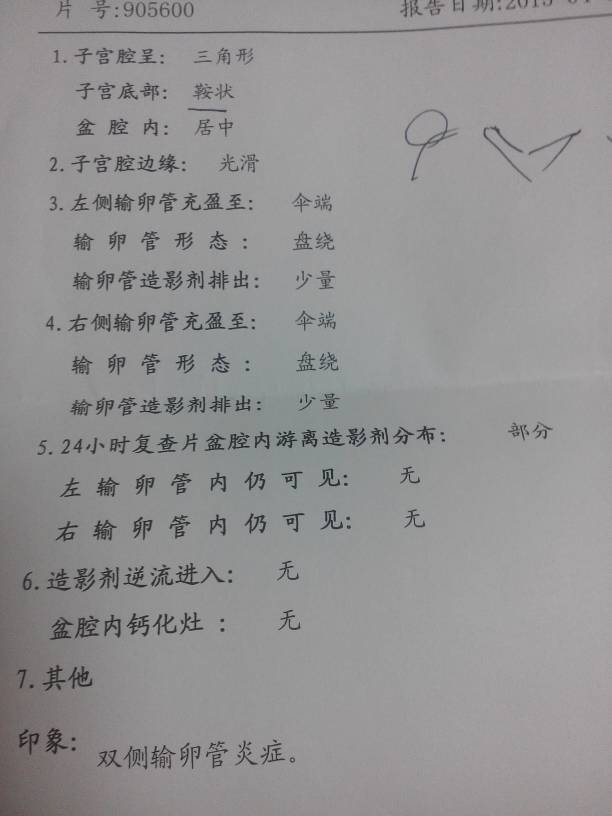 片 号:905600 报告日期:2015-04
1.子宫腔呈: 三角形
子宫底部: 鞍状
盆 腔 内: 居中
2.子宫腔边缘: 光滑
3.左侧输卵管充盈至: 伞端
输 卵 管 形 态 : 盘绕
输卵管造影剂排出: 少量
4.右侧输卵管充盈至: 伞端
输 卵 管 形 态 : 盘绕
输卵管造影剂排出: 少量
5.24小时复查片盆腔内游离造影剂分布: 部分
左 输 卵 管 内 仍 可 见: 无
右 输 卵 管 内 仍 可 见: 无
6.造影剂逆流进入: 无
盆腔内钙化灶 : 无
7.其他
印象: 双侧输卵管炎症。